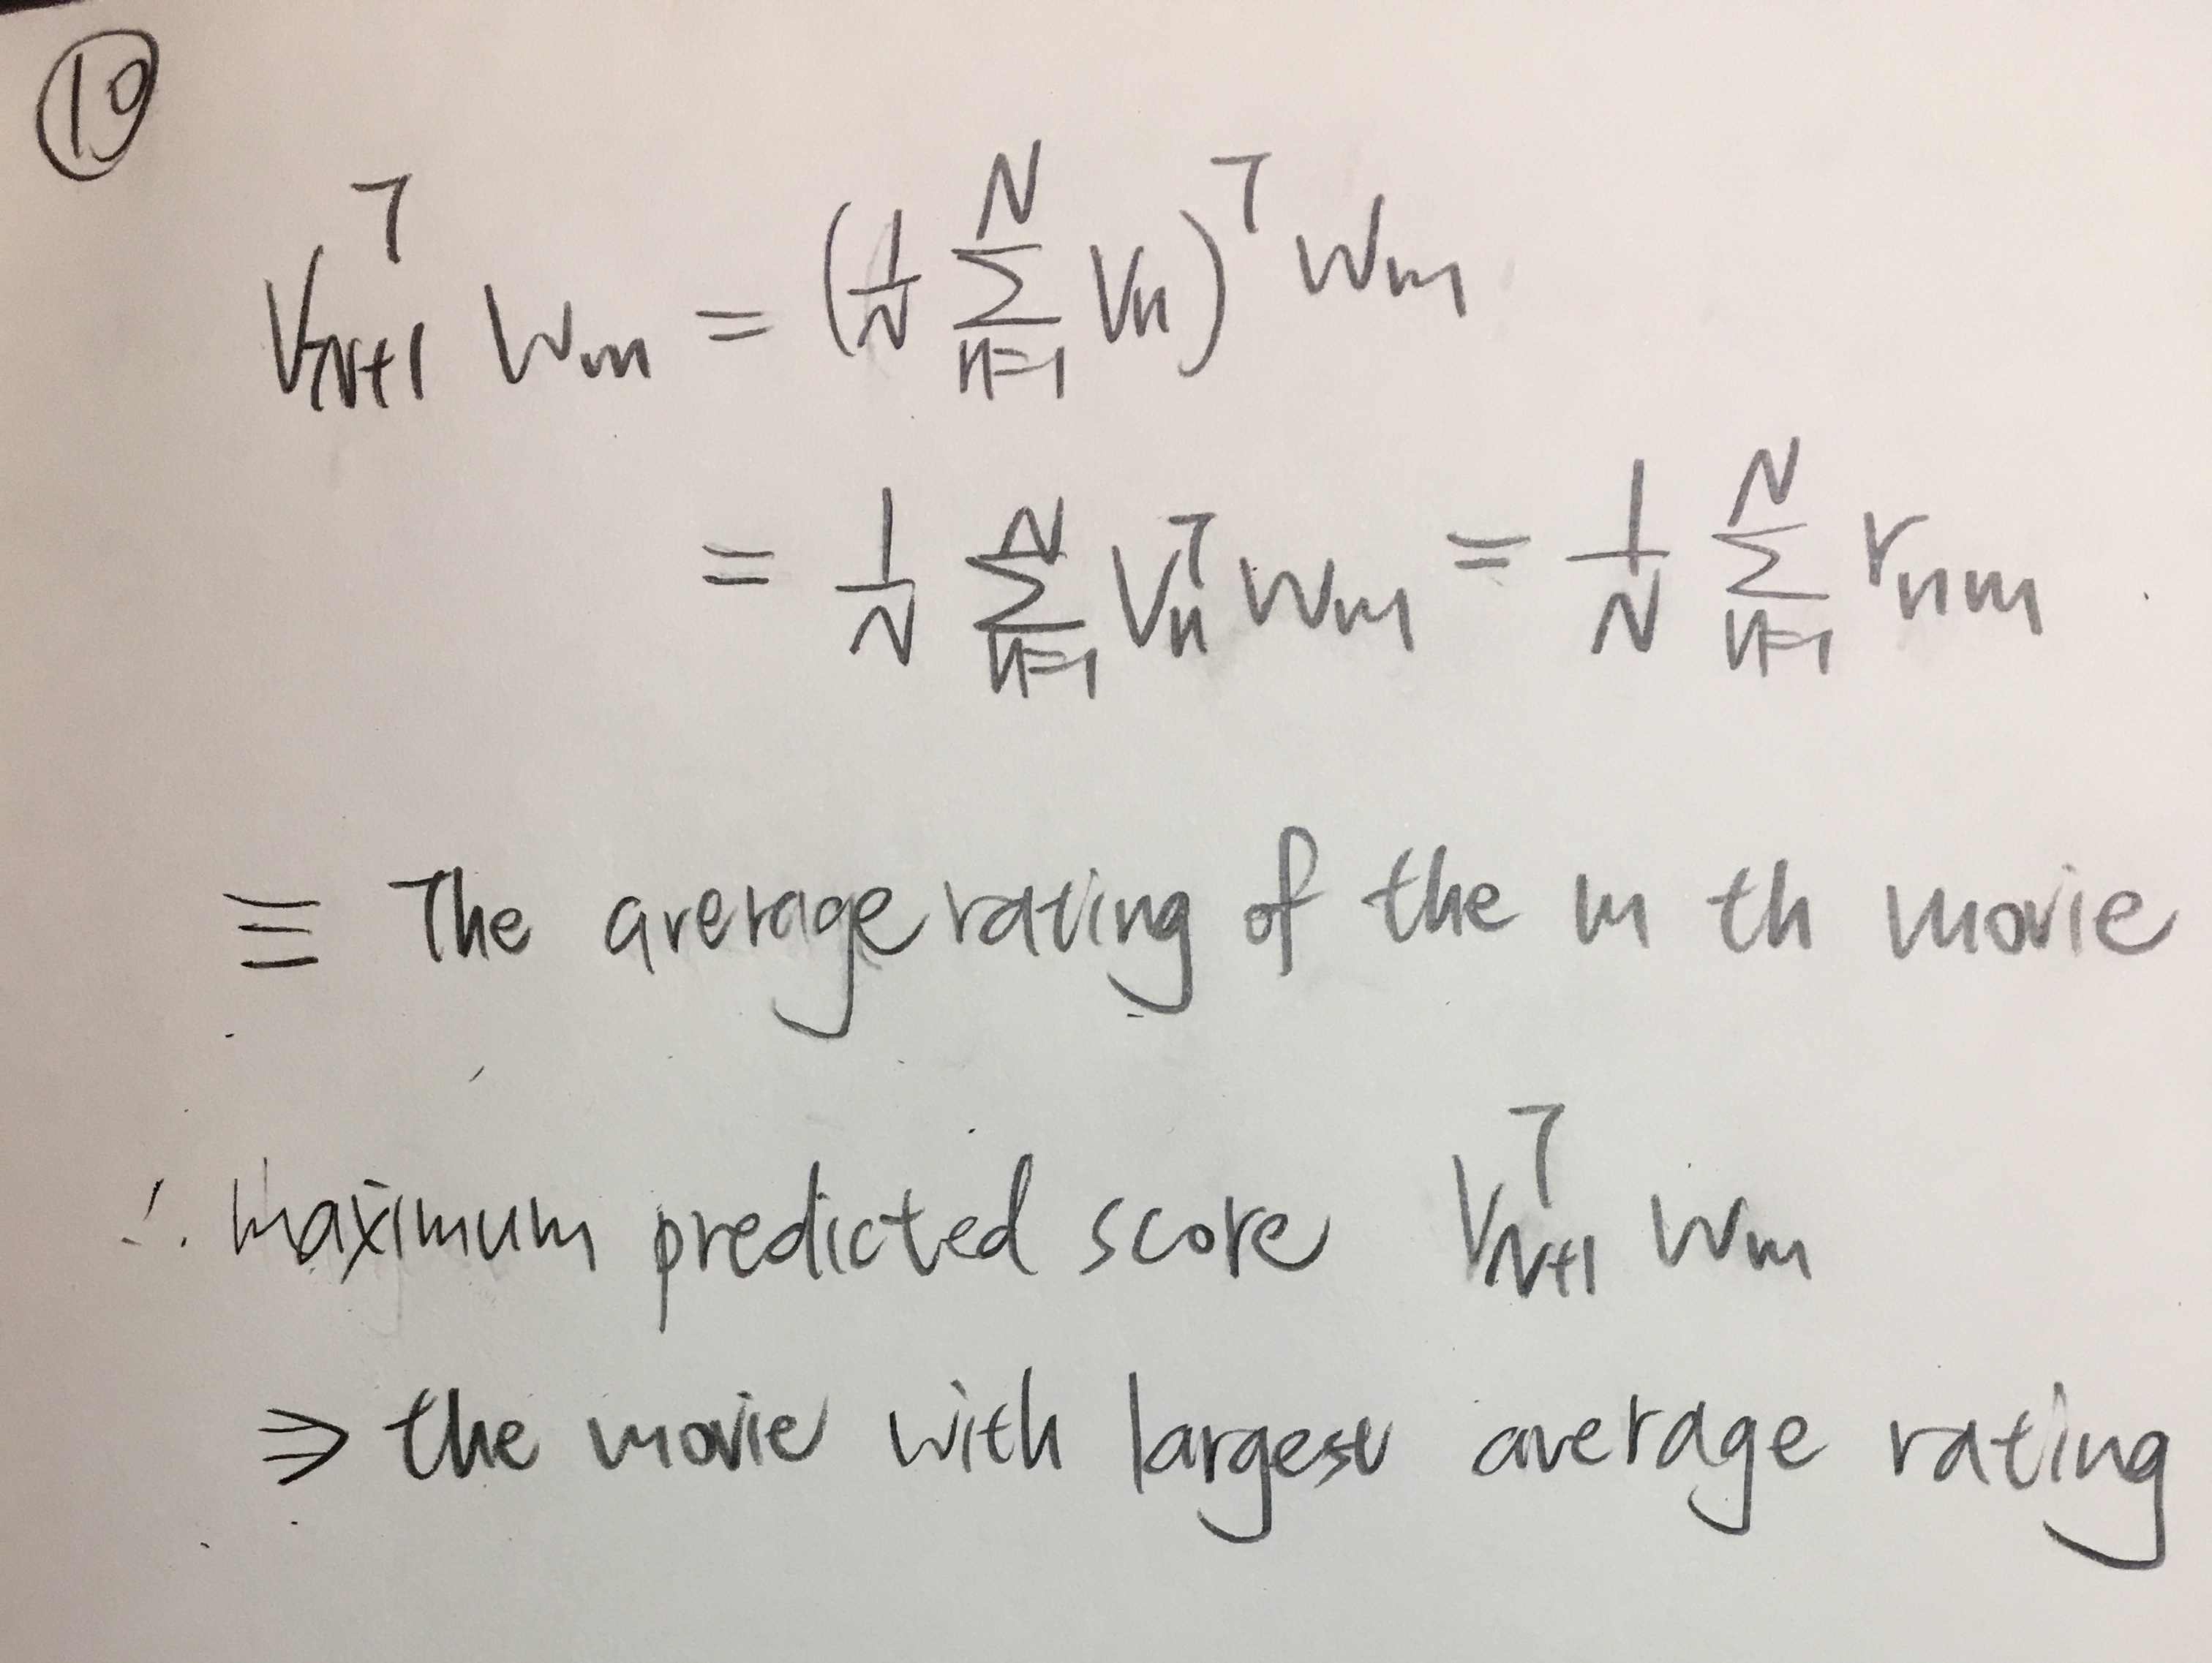 ⑩
V_{N+1}^T w_m = (1/N ∑_{n=1}^N V_n)^T w_m
= 1/N ∑_{n=1}^N V_n^T w_m = 1/N ∑_{n=1}^N r_{nm}
≡ The average rating of the m th movie
∴ maximum predicted score V_{N+1}^T w_m
⇒ the movie with largest average rating